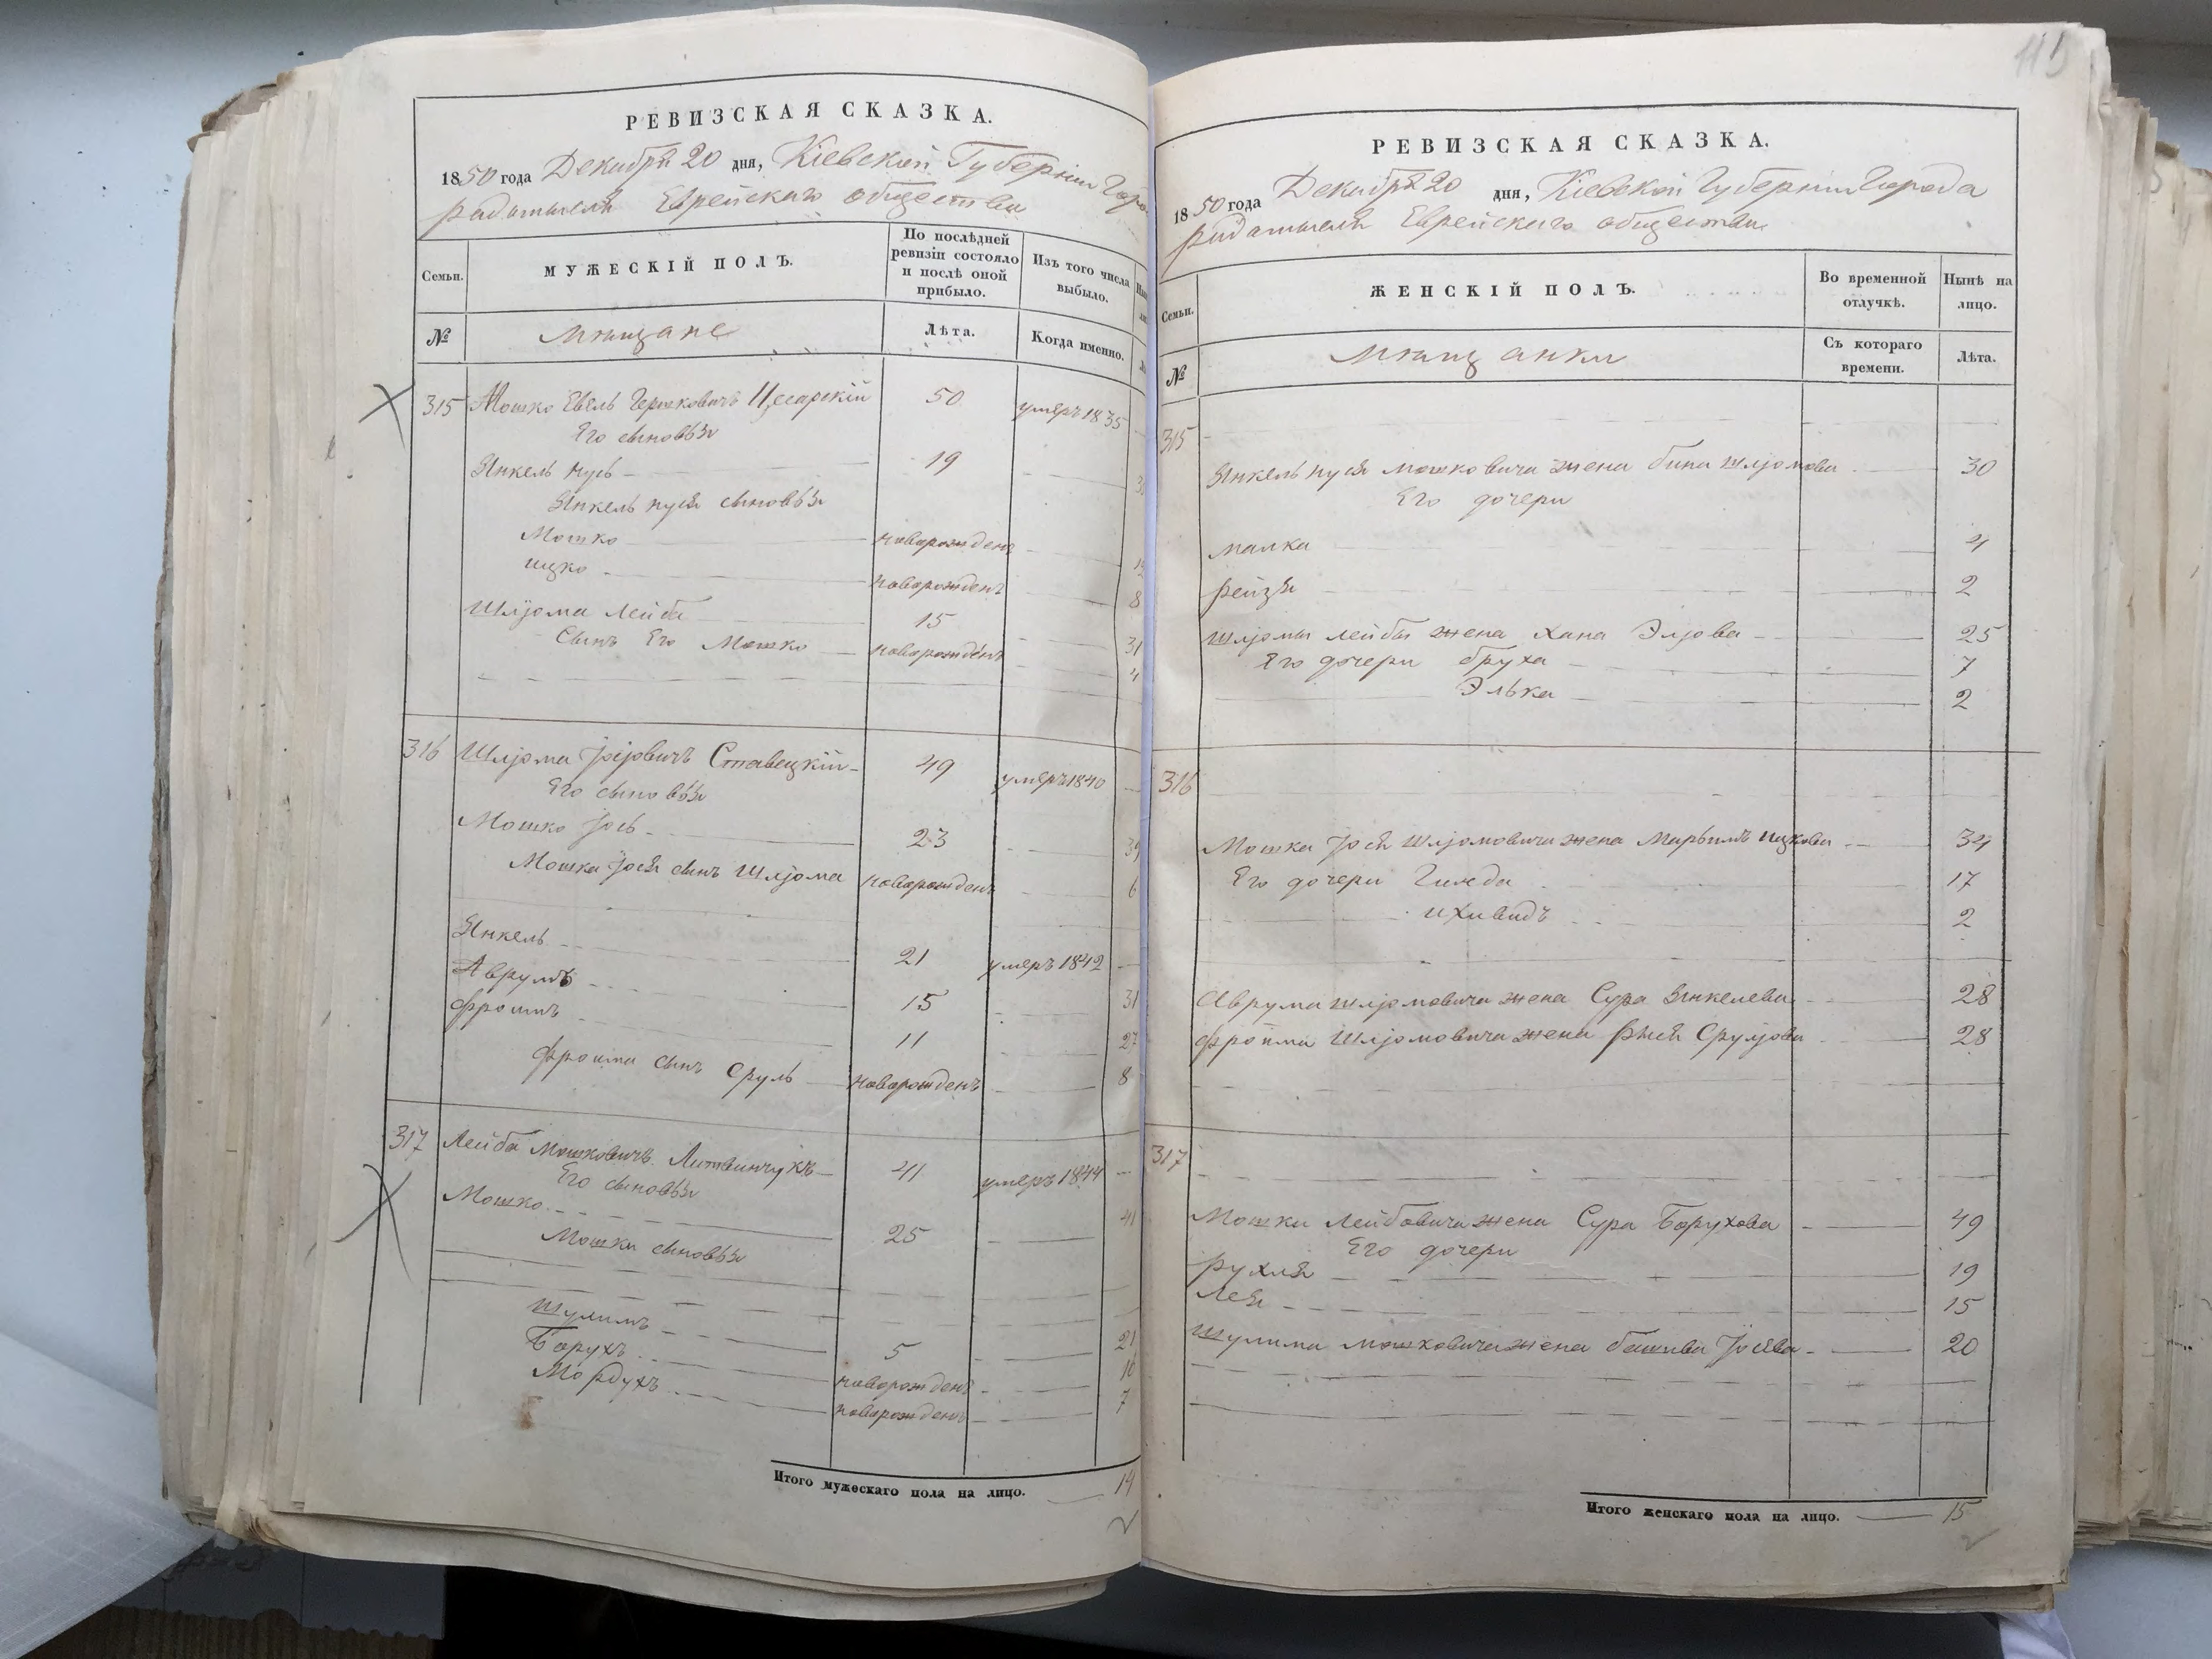 РЕВИЗСКАЯ СКАЗКА.
1850 года Декабря 20 дня, Кіевской Губерніи Горо
Радомысля Еврейскаго общества
Семьи.
МУЖЕСКІЙ ПОЛЪ.
По послѣдней ревизіи состояло и послѣ оной прибыло.
Изъ того числа выбыло.
№
мѣщане
Лѣта.
Когда именно.
315 Мошко Евель Гершковичъ Цесарскій 50 умеръ 1835
Его сыновья
Янкель Нусь 19
Янкель нуся сыновья
Мошко новорожденъ
ицко новорожденъ 8
Шліома Лейба 15 31
Сынъ Его Мошко новорожденъ 4
316 Шліома Іосіовичъ Ставецкій 49 умеръ 1840
Его сыновья
Мошко Іось 23
Мошка Іося сынъ Шліома новорожденъ 6
Янкель 21 умеръ 1842
Аврумъ 15 31
Фроимъ 11 27
Фроима сынъ Сруль новорожденъ 8
317 Лейба Мошковичъ Литвинчукъ 41 умеръ 1844
Его сыновья
Мошко 25 41
Мошки сыновья
Шулимъ 5 21
Борухъ новорожденъ 10
Мордухъ новорожденъ 7
Итого мужескаго пола на лицо. 14
115
РЕВИЗСКАЯ СКАЗКА.
1850 года Декабря 20 дня, Кіевской Губерніи Города
Радомысля Еврейскаго общества
Семьи.
ЖЕНСКІЙ ПОЛЪ.
Во временной отлучкѣ.
Нынѣ на лицо.
№
мѣщанки
Съ котораго времени.
Лѣта.
315
Янкель нуся мошковича жена бина шліомова 30
Его дочери
малка 4
рейзя 2
Шліомы лейбы жена хана Эліова 25
Его дочери бруха 7
Элька 2
316
Мошка Іося Шліомовича жена Марьимъ ицкова 34
Его дочери Гинда 17
ихивидъ 2
Аврума шліомовича жена Сура Янкелева 28
фройма Шліомовича жена Рыся Сруліова 28
317
Мошки Лейбовича жена Сура Борухова 49
Его дочери
Рухля 19
Лея 15
Шулима мошковича жена башива Іосіова 20
Итого женскаго пола на лицо. 15